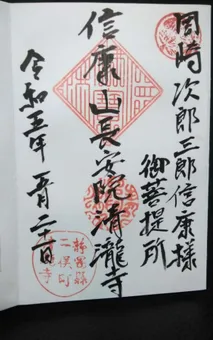 岡崎次郎三郎信康様
御菩提所
信康山長安院清瀧寺
令和五年 五月二十一日
静岡縣
二俣町